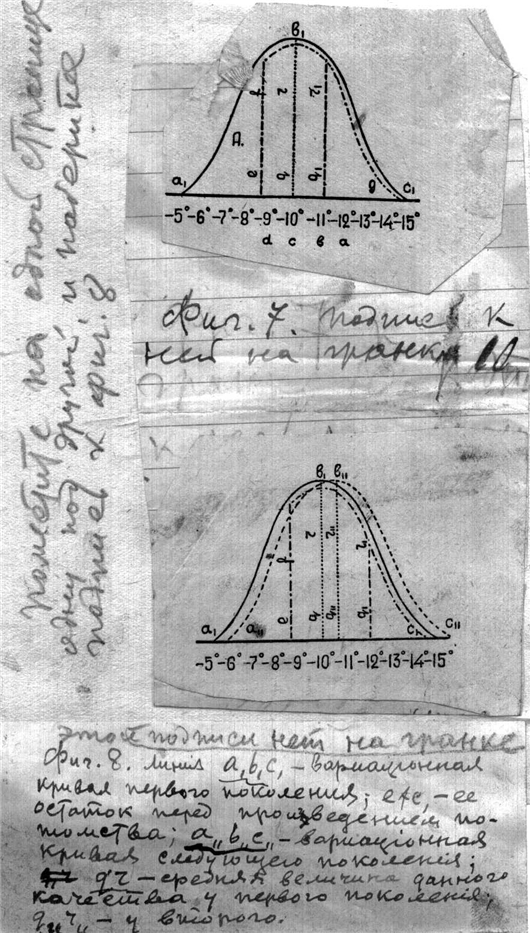 поместите на одной странице
одну под другой и наберите
подпись к фиг. 8
в₁
f r r₁
A.
e q q₁ g
a₁ c₁
-5° -6° -7° -8° -9° -10° -11° -12° -13° -14° -15°
d c в a
Фиг. 7. Подпись к
ней на гранке
в₁ в₁₁
f r r₁₁ r₁
e q q₁₁ q₁
a₁ a₁₁ c₁₁
-5° -6° -7° -8° -9° -10° -11° -12° -13° -14° -15°
Этой подписи нет на гранке
Фиг. 8. линия a,b,c, – вариационная
кривая первого поколения; efc, – ее
остаток перед произведением по-
томства; a,,b,,c,, – вариационная
кривая следующего поколения;
qr – средняя величина данного
качества у первого поколения;
q,,r,, – у второго.